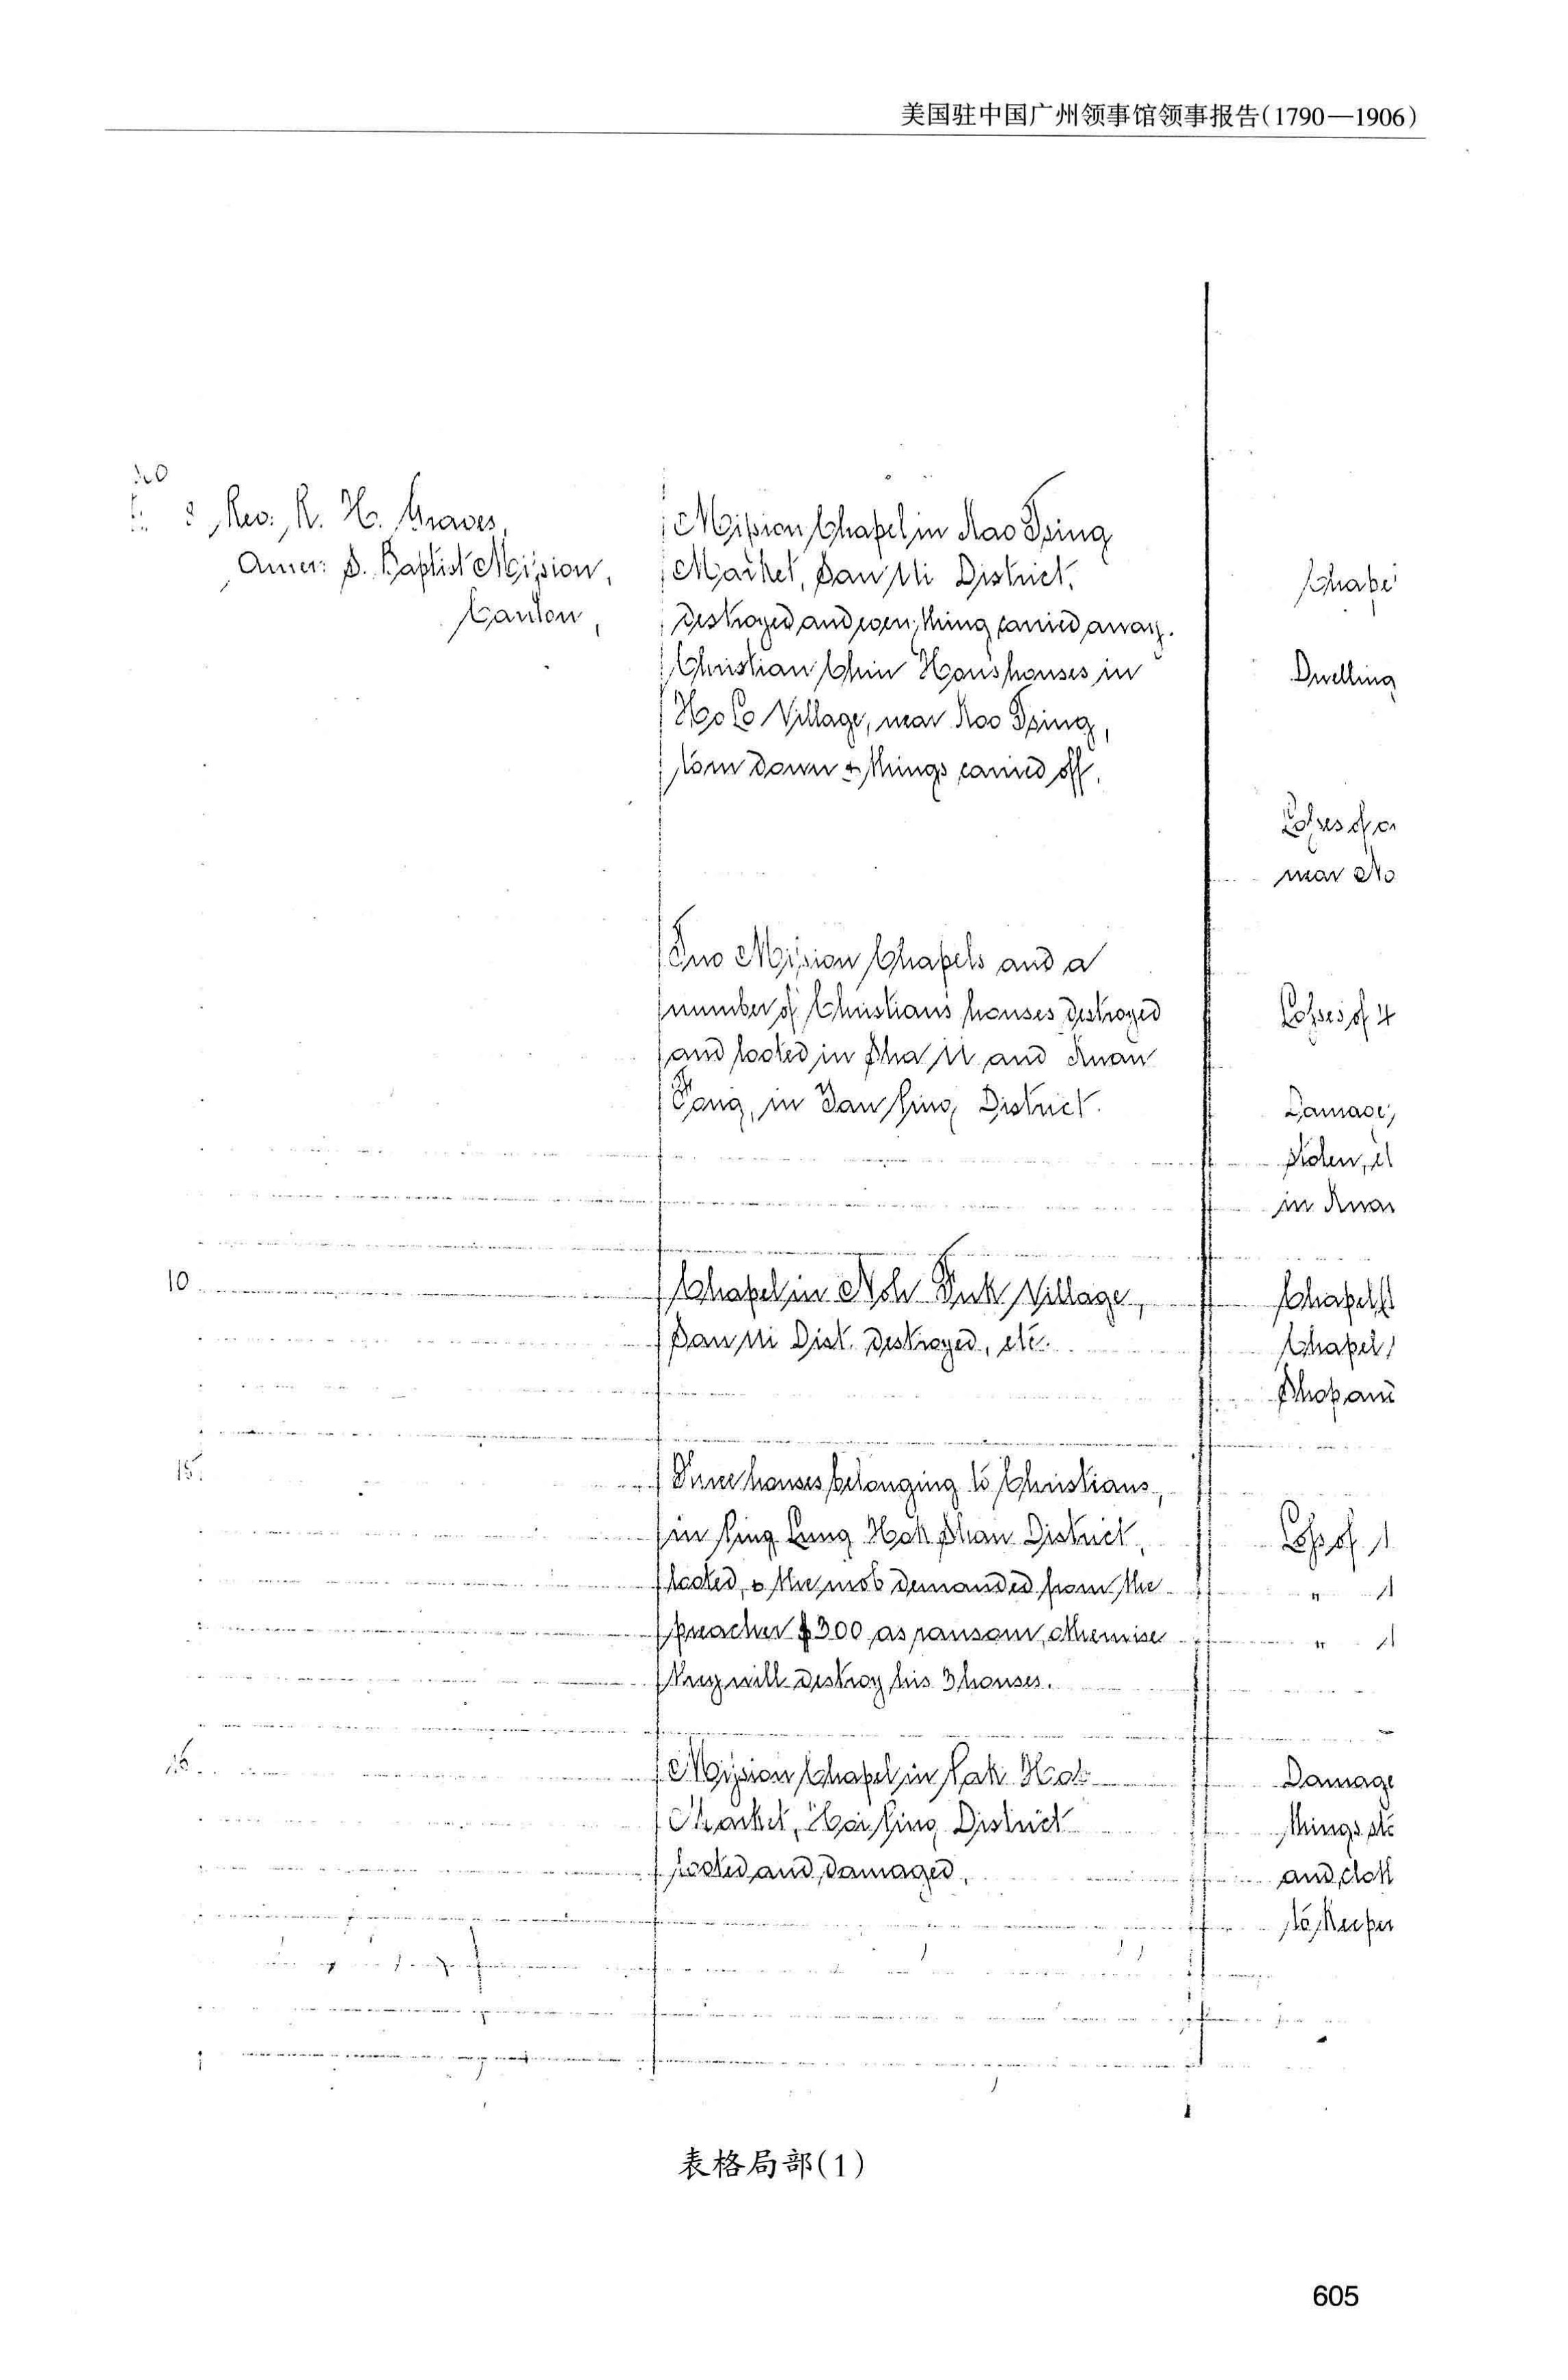 美国驻中国广州领事馆领事报告(1790—1906)
Rev. R. H. Graves,
Amer: S. Baptist Mission,
Canton,
Mission Chapel in Kao Tsing
Market, San Ui District,
destroyed and everything carried away.
Christian Chin Hon's houses in
Ho Lo Village, near Koo Tsing,
torn down & things carried off.
Chape
Dwelling
Losses of
near No
Two Mission Chapels and a
number of Christians houses destroyed
and looted in Sha Ui and Kuan
Tong, in Yan Ping District.
Losses of 4
Damage,
stolen,
in Kuan
10
Chapel in Noh Fuk Village,
San Ui Dist. destroyed, etc.
Chapel
Chapel
Shop and
15.
Three houses belonging to Christians,
in Ping Lung Hok Shan District,
looted, & the mob demanded from the
preacher $300 as ransom, otherwise
they will destroy his 3 houses.
Loss of 1
" 1
" 1
16.
Mission Chapel in Pak Hok
Market, Hoi Ping District
looted and damaged.
Damage
things sto
and cloth
to Keeper
表格局部(1)
605